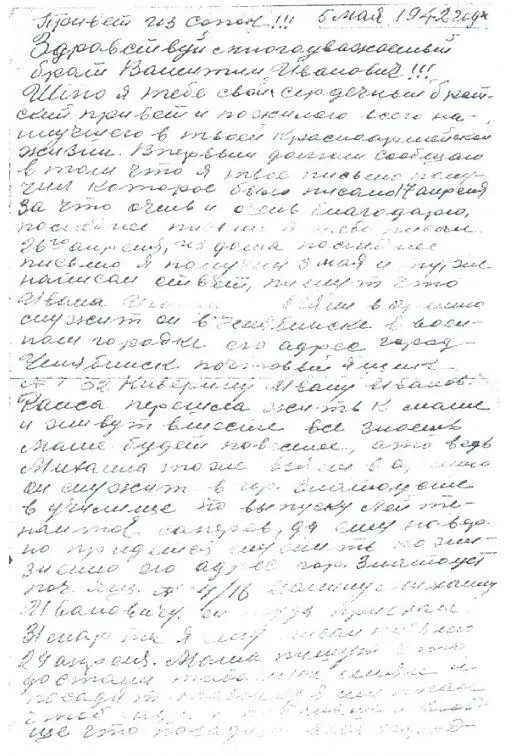 Привет из сопок!!! 5 мая 1942 года
Здравствуй многоуважаемый
брат Валентин Иванович!!!
Шлю я тебе свой сердечный брат-
ский привет и пожилаю всего на-
илучшего в твоей красноармейской
жизни. Впервым долгом сообщаю
в том что я твое письмо полу-
чил которое было писано 17 апреля
За что очень и очень благодарю,
последнее письмо я тебе писал
26го апреля, из дома последнее
письмо я получил 3 мая и уже
написал ответ, пишут что
Ивана взяли в армию
служит он в Челябинске в воен-
ном городке его адрес город
Челябинск почтовый ящик
№ 52 Ивану Иванов.
Раиса перешла жить к маме
и живут вместе все
маме будет повеселее, а то ведь
Михаила тоже взяли в армию
он служит в гор. Златоусте
в училище по выпуску лейте-
нантов саперов, да ему
но придется служить
его адрес гор. Златоуст
поч. ящ. № 4/16 Михаилу
Ивановичу. он туда приехал
31 марта я ему писал письмо
24 апреля. Мама пишут что
достали
посадят
чтоб
ще что посадили